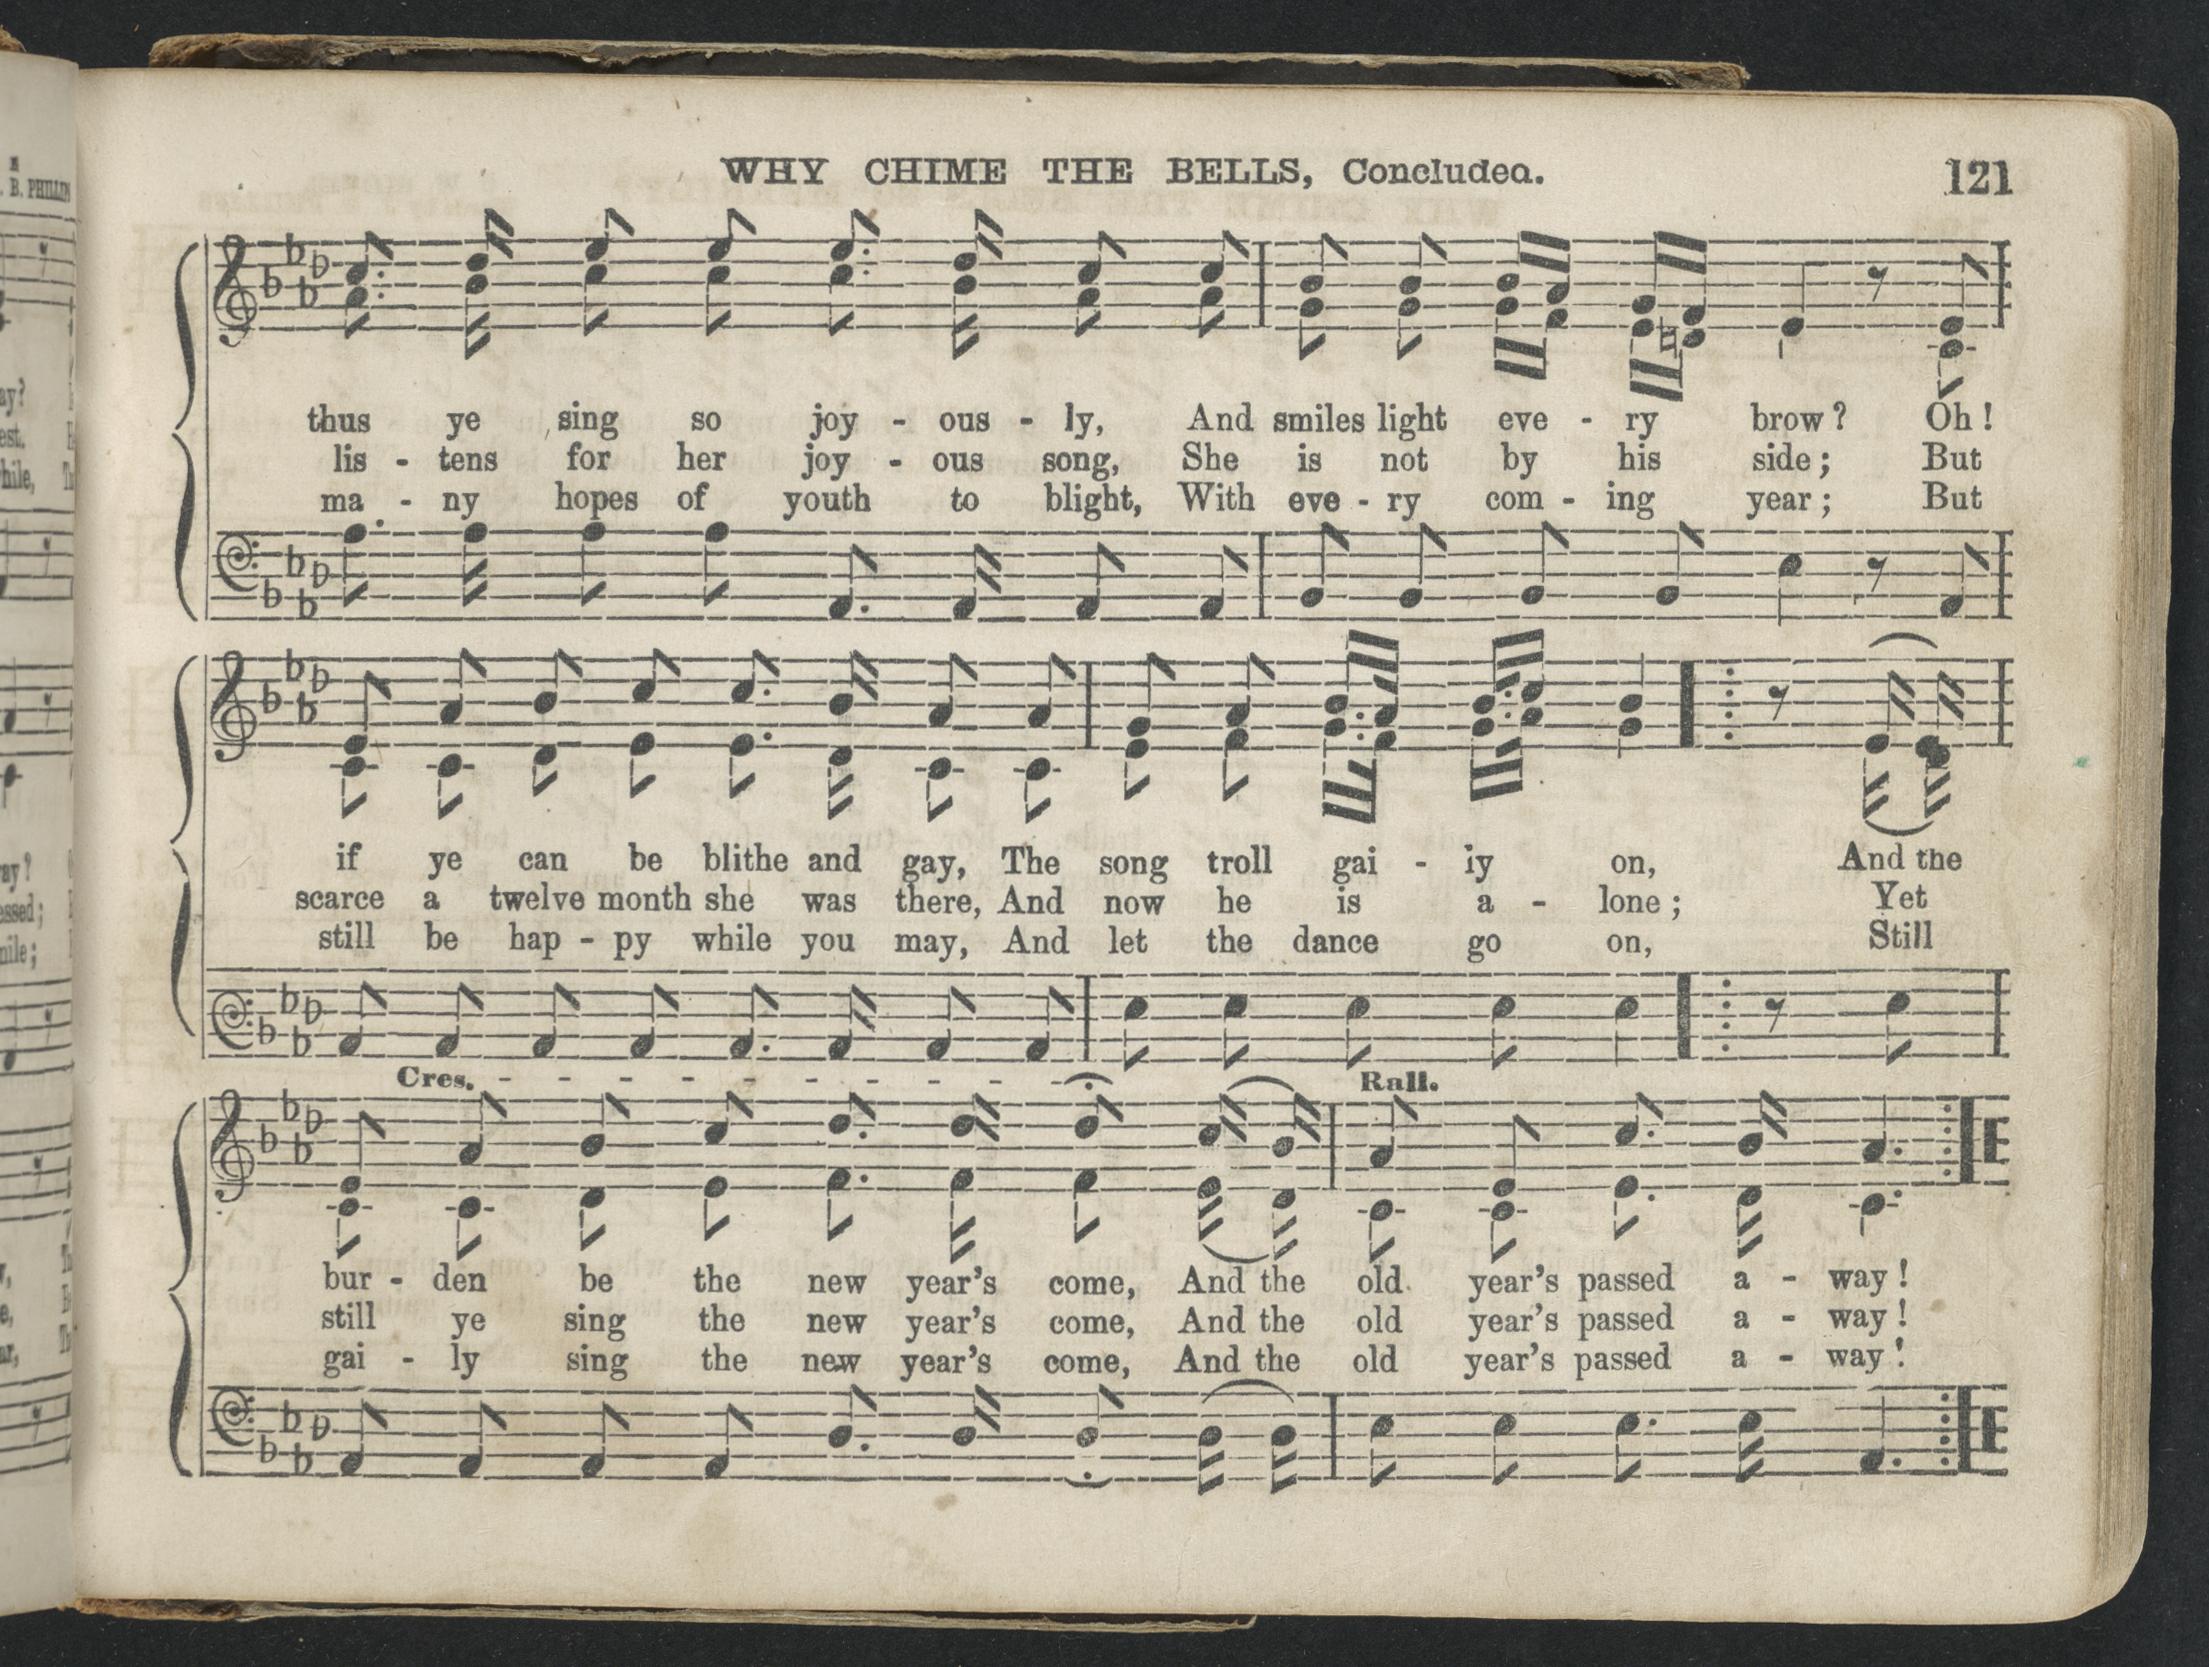 WHY CHIME THE BELLS, Concludea.
121
. B. PHILLIPS
thus ye sing so joy - ous - ly, And smiles light eve - ry brow? Oh!
lis - tens for her joy - ous song, She is not by his side; But
ma - ny hopes of youth to blight, With eve - ry com - ing year; But
if ye can be blithe and gay, The song troll gai - iy on, And the
scarce a twelve month she was there, And now he is a - lone; Yet
still be hap - py while you may, And let the dance go on, Still
Cres. - - - - - - - - - -
Rall.
bur - den be the new year's come, And the old year's passed a - way!
still ye sing the new year's come, And the old year's passed a - way!
gai - ly sing the new year's come, And the old year's passed a - way!